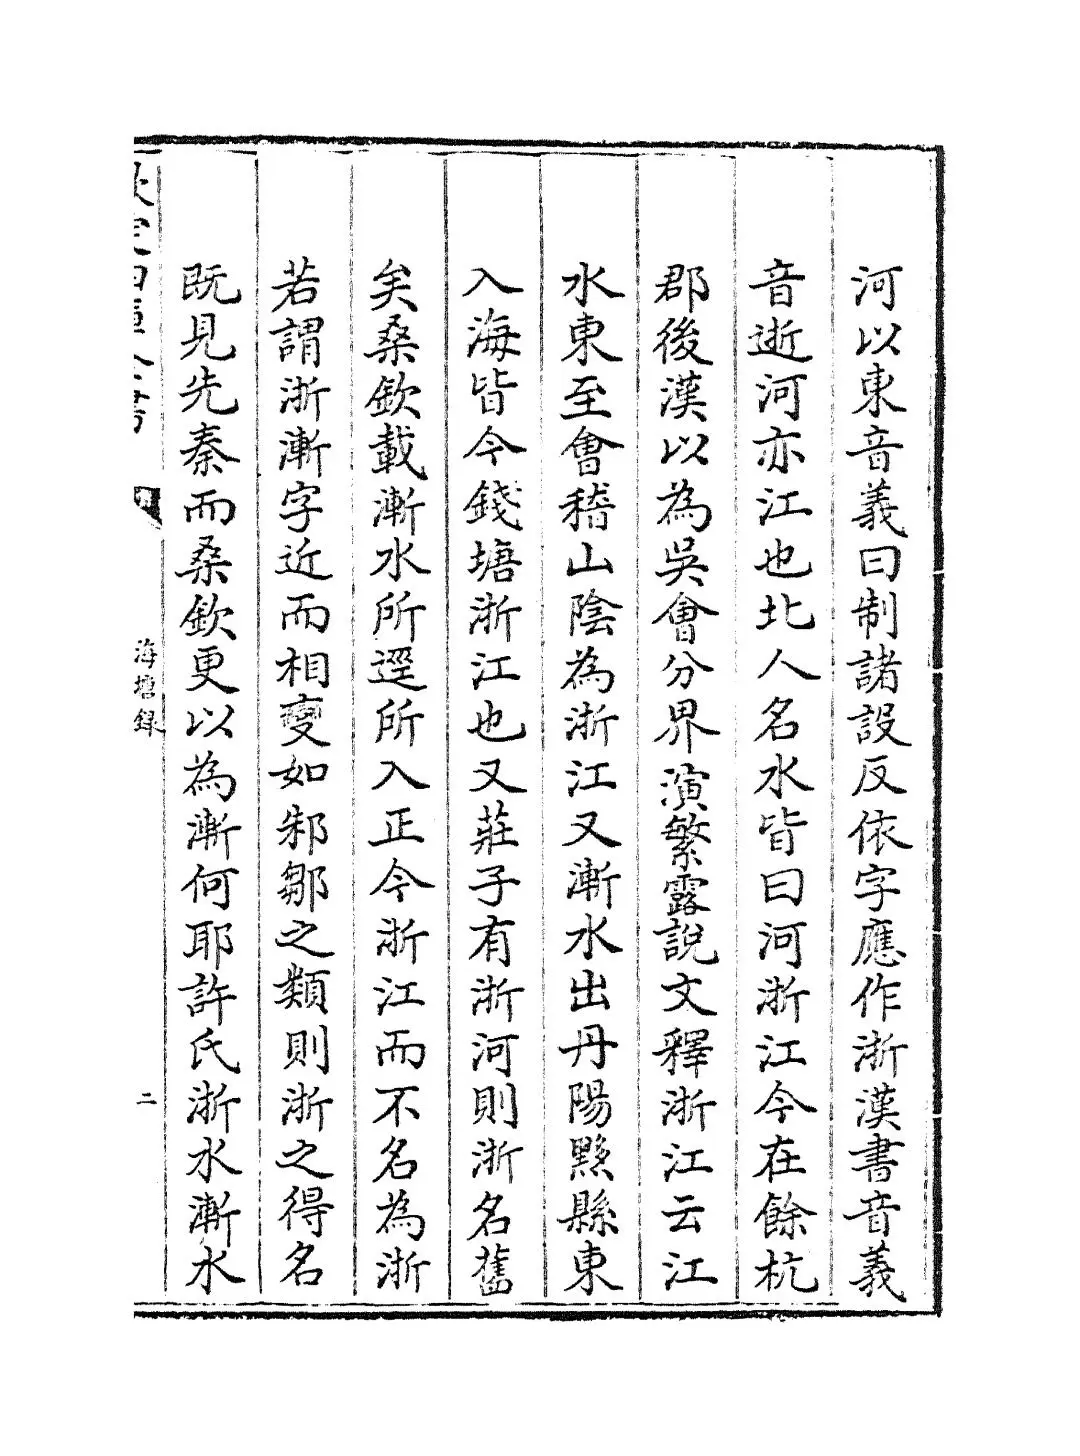 河以東音義曰制諸設反依字應作浙漢書音義
音逝河亦江也北人名水皆曰河浙江今在餘杭
郡後漢以為吳會分界演繁露說文釋浙江云江
水東至會稽山陰為浙江又漸水出丹陽黟縣東
入海皆今錢塘浙江也又莊子有浙河則浙名舊
矣桑欽載漸水所逕所入正今浙江而不名為浙
若謂浙漸字近而相變如邾鄒之類則浙之得名
既見先秦而桑欽更以為漸何耶許氏浙水漸水
欽定四庫全書
海塘録
二